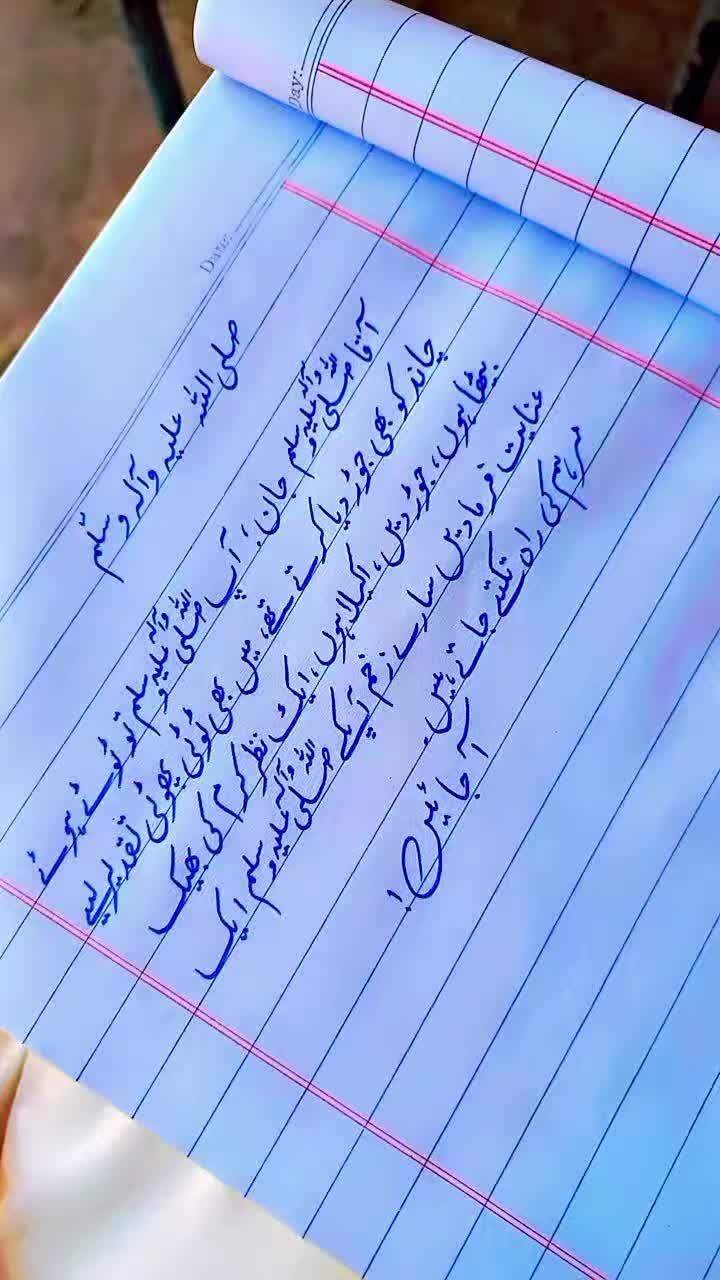 Day:
Date:
صلی اللہ علیہ وآلہ وسلم
آقا صلی اللہ علیہ وآلہ وسلم جان؛ آپ صلی اللہ علیہ وآلہ وسلم تو ٹوٹے ہوئے
چاند کو بھی جوڑ دیا کرتے تھے، میں بھی ٹوٹی پھوٹی تقدیر لیے
بیٹھا ہوں، جوڑ دیں، اکیلا ہوں، ایک نظرِ کرم کی بھیک
عنایت فرما دیں سارے زخم آپکے صلی اللہ علیہ وآلہ وسلم ایک
مرہم کی راہ تکتے جاتے ہیں۔
آ جائیں!